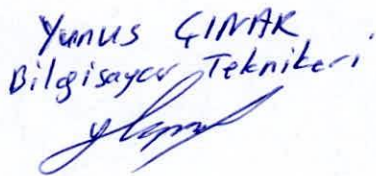 Yunus ÇINAR
Bilgisayar Teknikeri